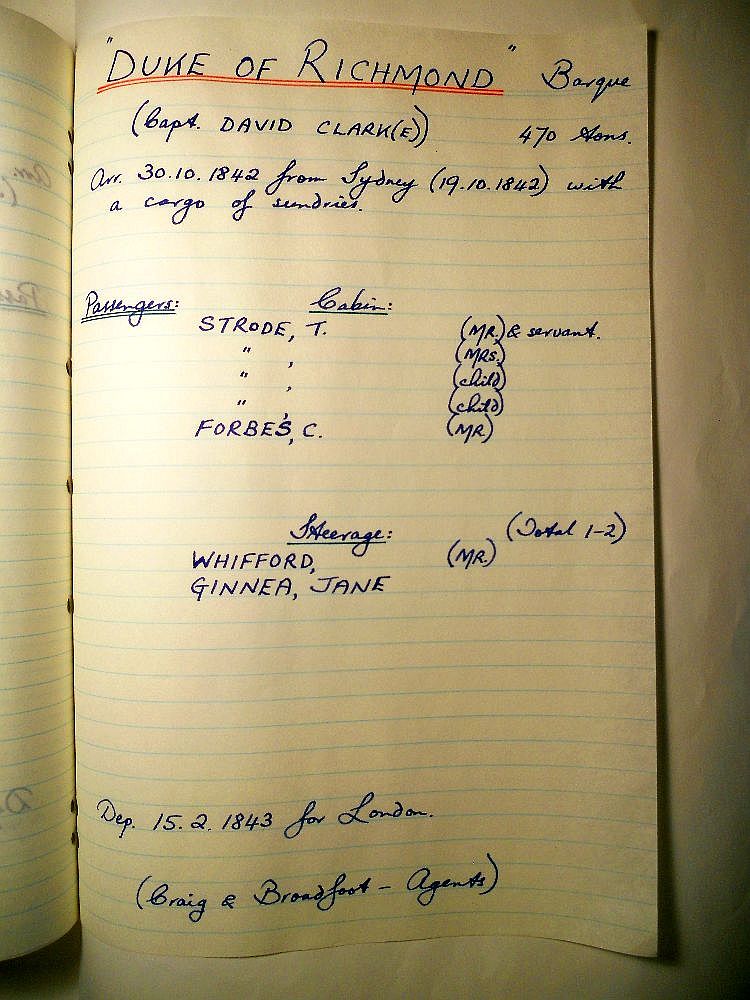 "DUKE OF RICHMOND" Barque
(Capt. DAVID CLARK(E)) 470 tons.
Arr. 30.10.1842 from Sydney (19.10.1842) with
a cargo of sundries.
Passengers: Cabin:
STRODE, T. (MR.) & servant.
" , (MRS.)
" , (child)
" , (child)
FORBES, C. (MR.)
Steerage: (Total 1-2)
WHIFFORD, (MR.)
GINNEA, JANE
Dep. 15.2.1843 for London.
(Craig & Broadfoot - Agents)